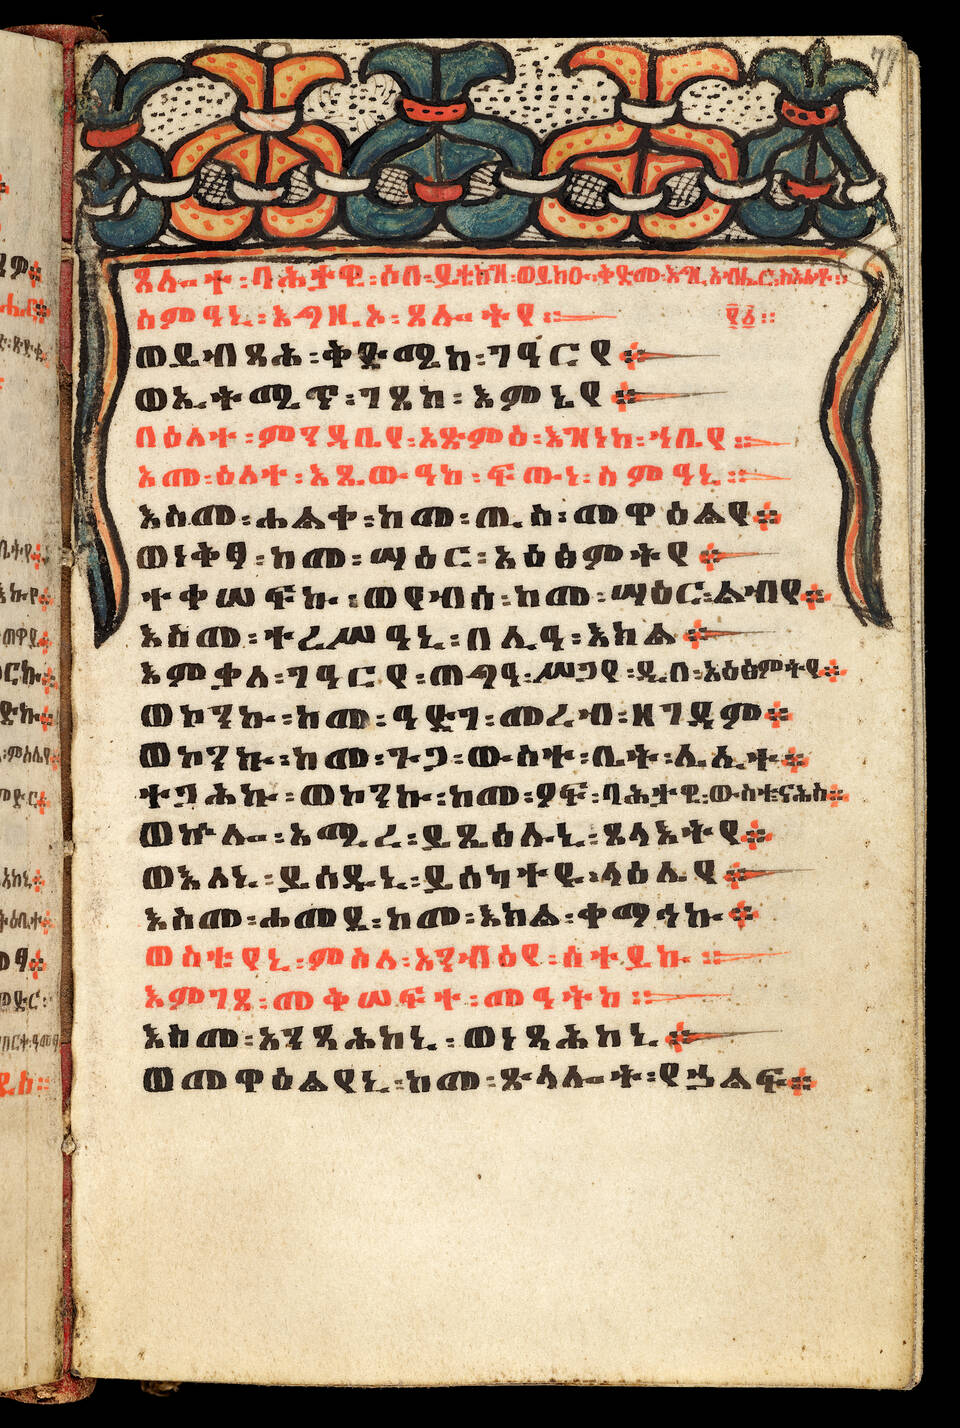 77
ጸሎተ፡ባሕታዊ፡ሰበ፡ይቴክዝ፡ወይክዑ፡ቅድመ፡እግዚአብሔር፡ስእለቶ።
ስምዓኒ፡እግዚኦ፡ጸሎትየ። ፻፩።
ወይብጻሕ፡ቅድሜከ፡ገዓርየ።
ወኢትሚጥ፡ገጸከ፡እምኔየ።
በዕለተ፡ምንዳቤየ፡አጽምዕ፡እዝነከ፡ኀቤየ።
አመ፡ዕለተ፡እጼውዓከ፡ፍጡነ፡ስምዓኒ።
እስመ፡ሐልቀ፡ከመ፡ጢስ፡መዋዕልየ።
ወነቅፃ፡ከመ፡ሣዕር፡አዕፅምትየ።
ተቀሠፍኩ፡ወየብሰ፡ከመ፡ሣዕር፡ልብየ።
እስመ፡ተረሥዓኒ፡በሊዓ፡እክል።
እምቃለ፡ገዓርየ፡ጠግዓ፡ሥጋየ፡ዲበ፡አዕፅምትየ።
ወኮንኩ፡ከመ፡ዓድገ፡መረብ፡ዘገዳም።
ወኮንኩ፡ከመ፡ጉጋ፡ውስተ፡ቤት፡ሌሊተ።
ተጋሕኩ፡ወኮንኩ፡ከመ፡ዖፍ፡ባሕታዊ፡ውስተ፡ናሕስ።
ወኵሎ፡አሚረ፡ይጼዕሉኒ፡ጸላእትየ።
ወእለኒ፡ይሰዱኒ፡ይሰካትዩ፡ላዕሌየ።
እስመ፡ሐመደ፡ከመ፡እክል፡ቀማሕኩ።
ወስቴየኒ፡ምስለ፡አንብዕየ፡ሰተይኩ።
እምገጸ፡መቅሠፍተ፡መዓትከ።
እስመ፡አንጻሕከኒ፡ወነጻሕከኒ።
ወመዋዕልየኒ፡ከመ፡ጽላሎት፡የኃልፍ።